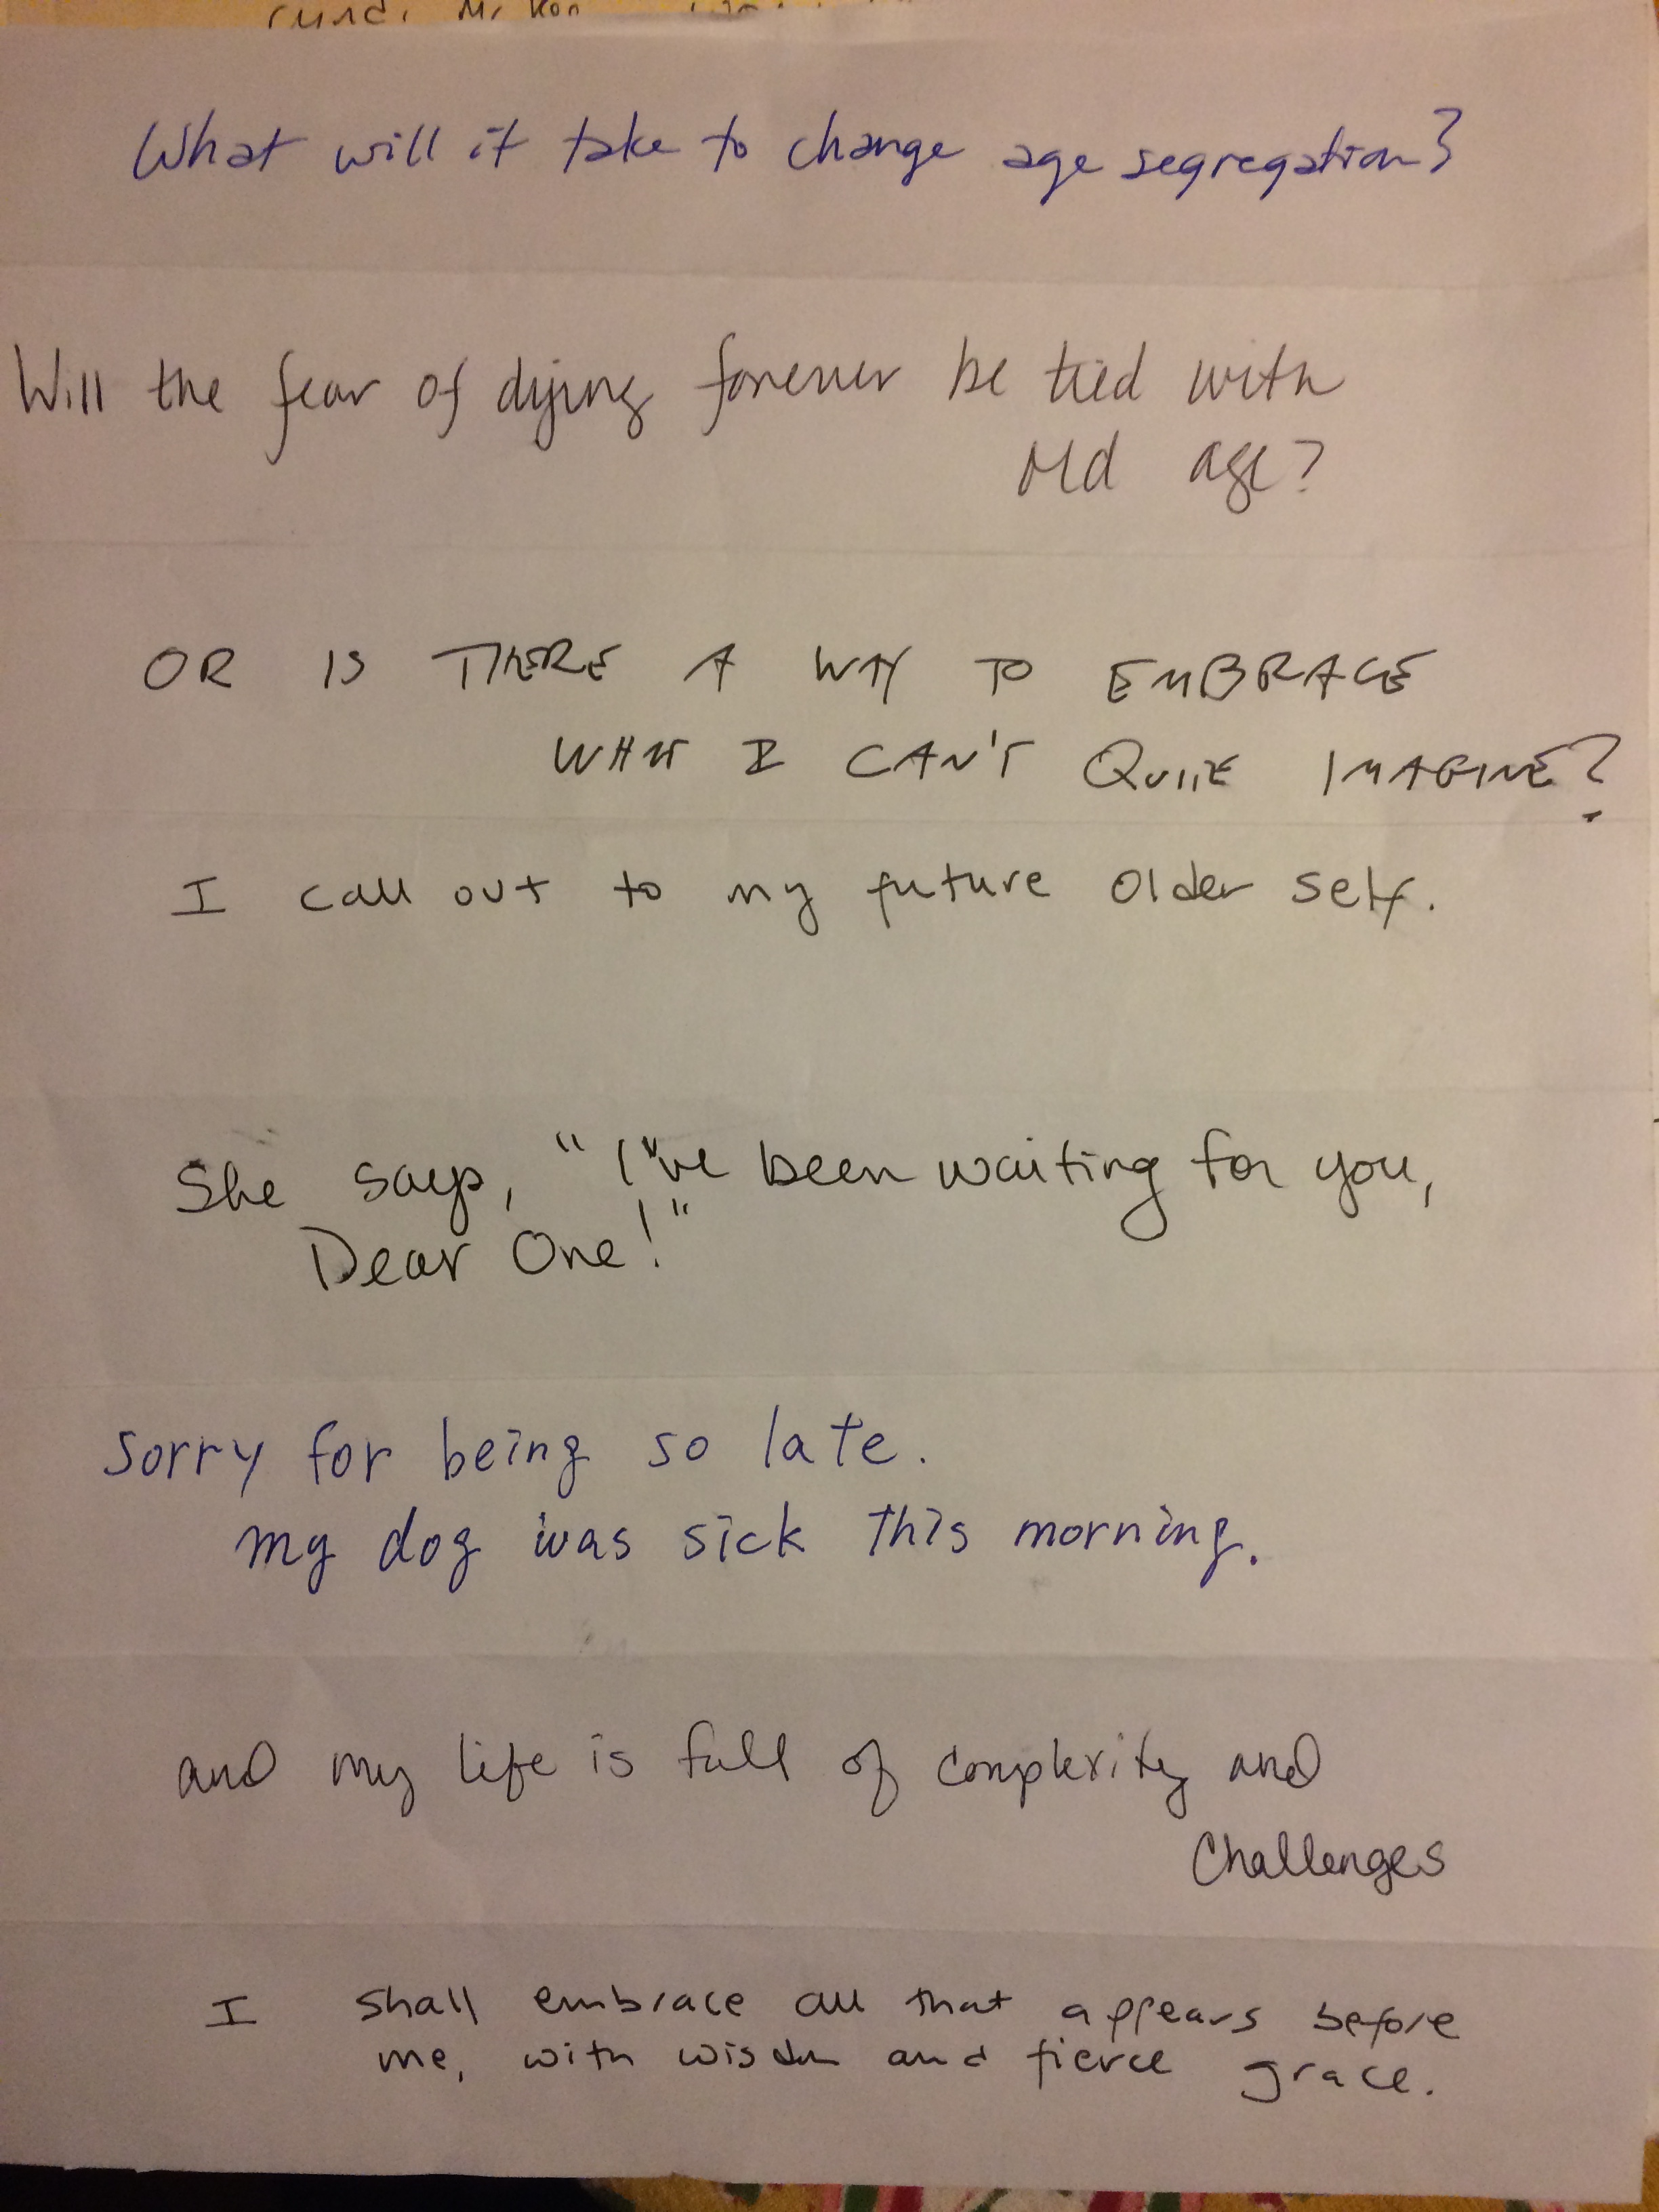 What will it take to change age segregation?
Will the fear of dying forever be tied with
old age?
OR IS THERE A WAY TO EMBRACE
WHAT I CAN'T QUITE IMAGINE?
I call out to my future older self.
She says, "I've been waiting for you,
Dear One!"
Sorry for being so late.
my dog was sick this morning.
and my life is full of complexity and
Challenges
I shall embrace all that appears before
me, with wisdom and fierce grace.